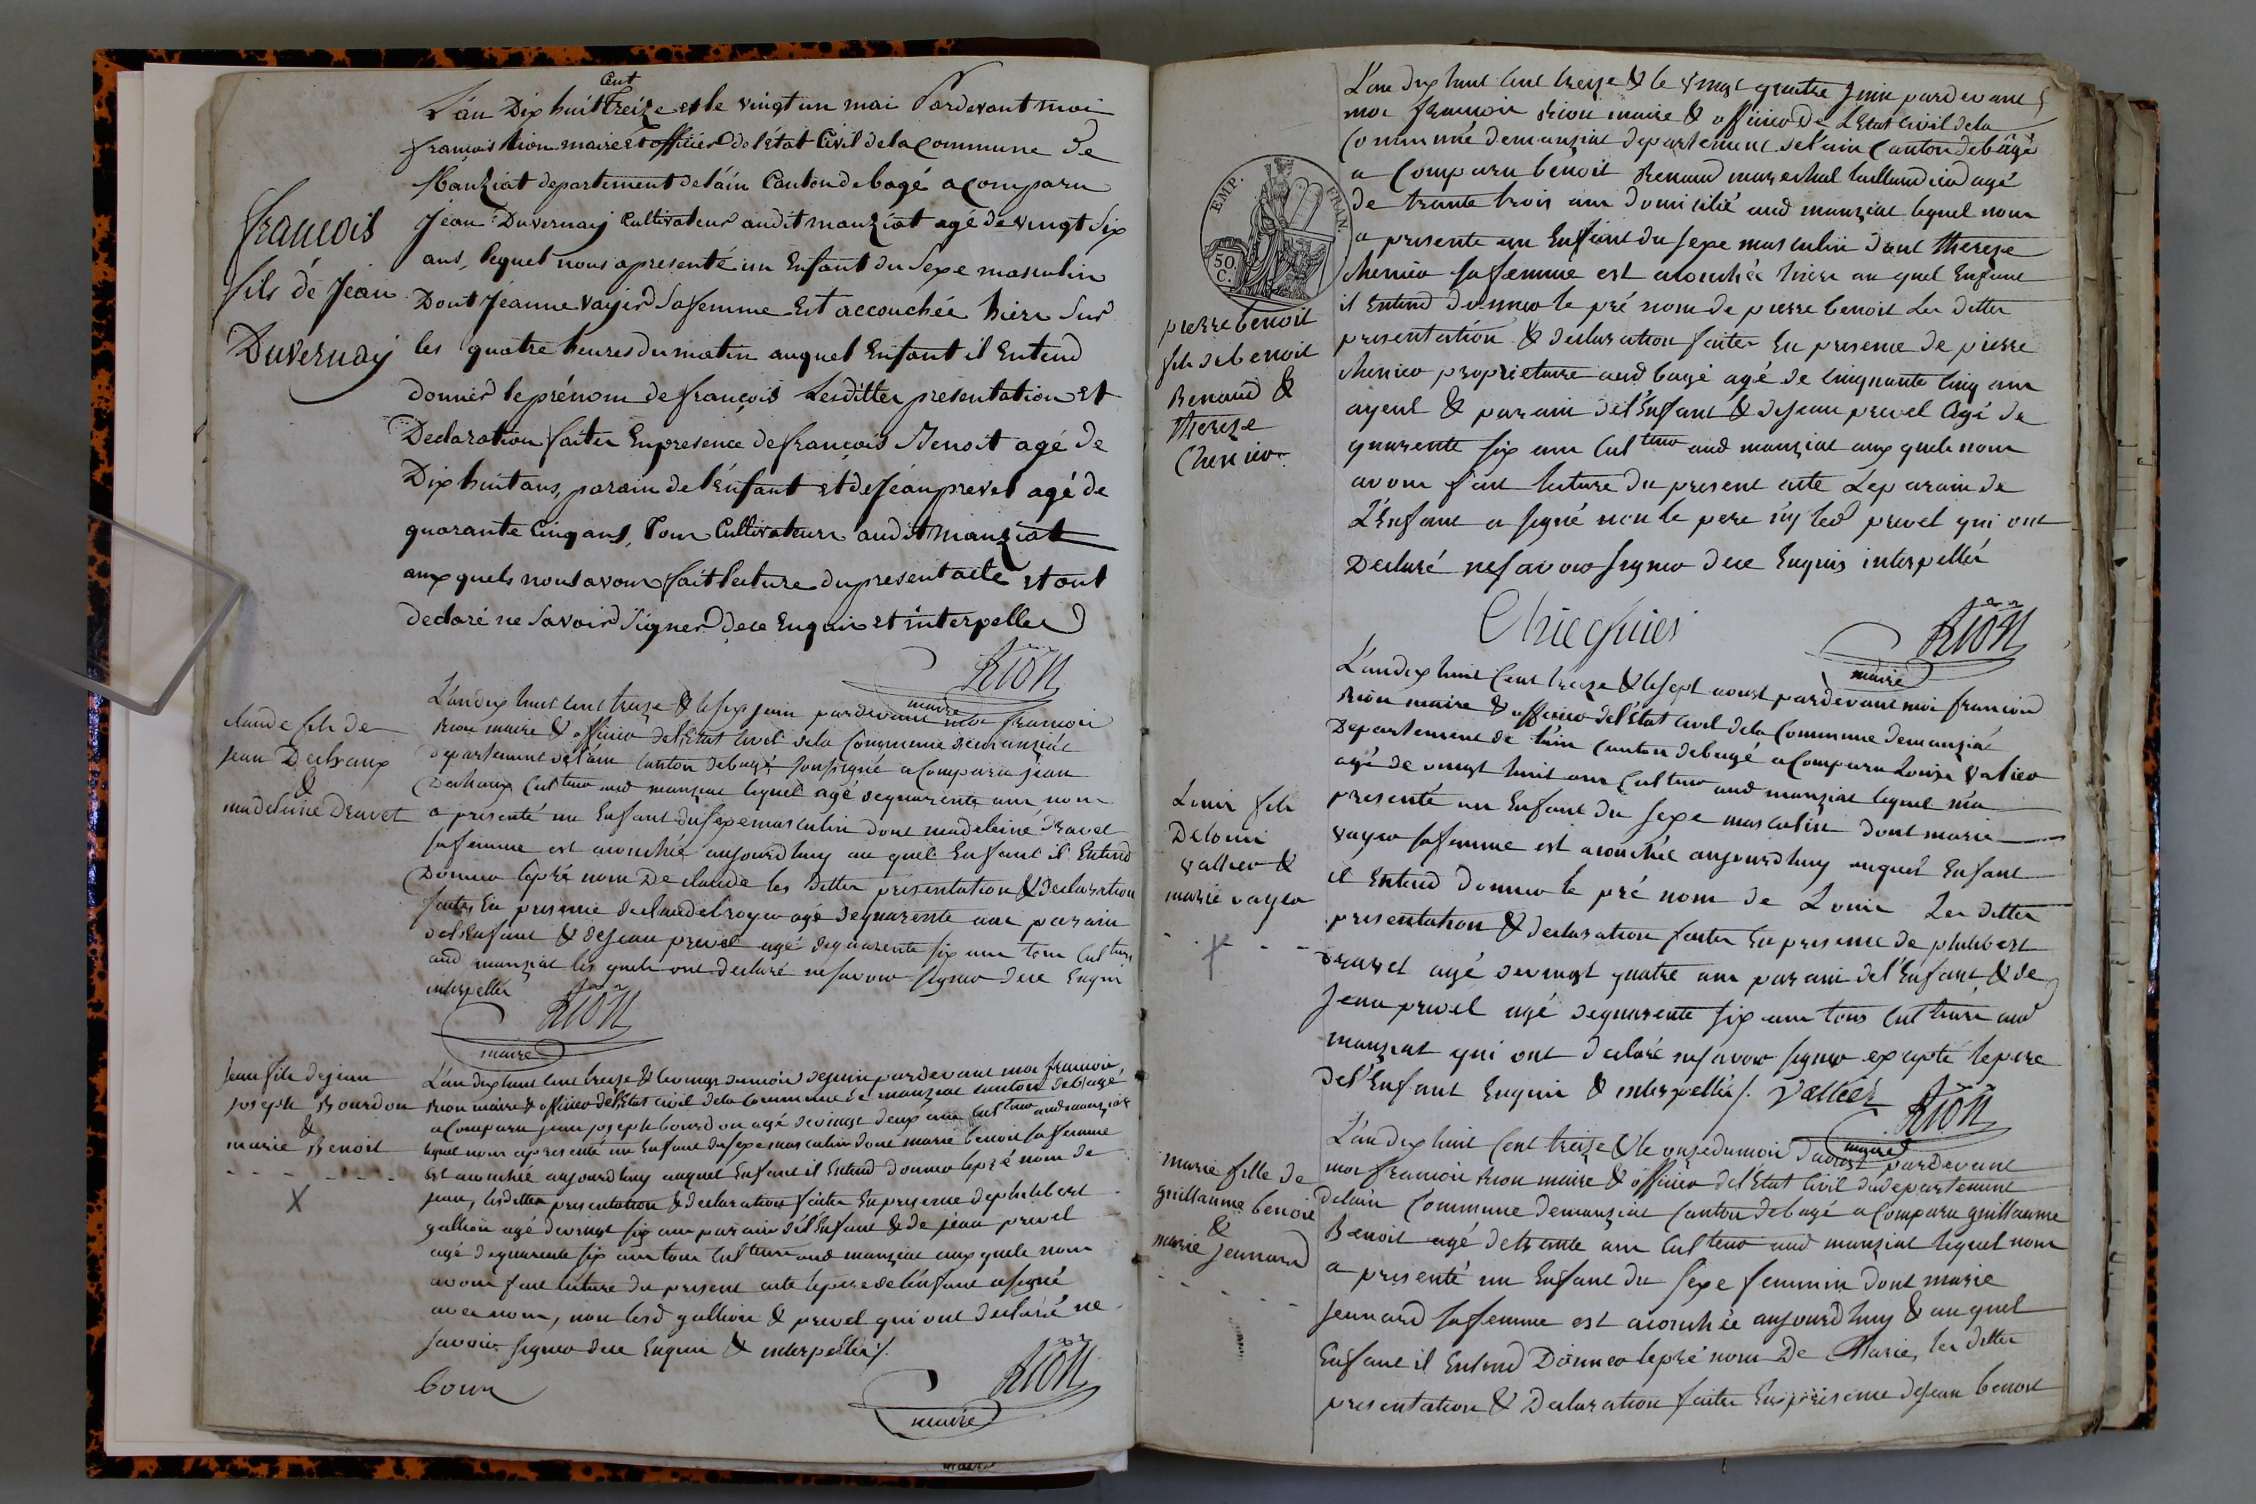 françois
fils de jean
Duvernay
Cent
L'an Dix huit treize et le vingt un mai Pardevant moi
françois rion maire et officier de l'état Civil de la Commune de
Manziat departement de l'ain Canton de bagé a Comparu
Jean Duvernay Cultivateur audit manziat agé de vingt six
ans, lequel nous a presenté un Enfant du Sexe masculin
Dont Jeanne vayer sa femme Est accouchée hier sur
les quatre heures du matin auquel Enfant il Entend
donner le prénom de françois Lesdittes presentation et
Declaration faites En presence de françois Benoit agé de
Dix huit ans, parain de l'Enfant et de Jean prevel agé de
quarante Cinq ans, Tous Cultivateurs audit manziat
aux quels nous avons fait lecture du present acte et ont
declaré ne Savoir Signer de ce Enquis et interpellés
Rion
maire
claude fils de
jean Dechaux
&
madeleine Dravet
L'an dix huit cent treize & le six juin pardevant moi francois
Rion maire & officier de l'Etat civil de la Commune de manziat
departement de l'ain canton de bagé soussigné a Comparu jean
Dechaux Cultteur aud manziat lequel agé de quarente ans nous
a presenté un Enfant du sexe masculin dont madeleine Dravet
sa femme est acouchée aujourdhuy au quel Enfant il Entend
Donner le pré nom De claude les dittes presentation & declaration
faites En presence de claude broyer agé de quarente ans parain
de l'Enfant & de jean prevel agé de quarente six ans tous cultteurs
aud manziat les quels ont declaré ne savoir signer de ce Enquis
interpellés
Rion
maire
jean fils de jean
joseph Bourdon
&
marie Benoit
X
L'an dix huit cent treize & le vingt du mois de juin pardevant moi francois
Rion maire & officier de l'Etat civil de la Commune de manziat canton de bagé
a Comparu jean joseph bourdon agé de vingt deux ans cultteur aud manziat
lequel nous a presenté un Enfant du sexe masculin dont marie benoit sa femme
Est acouchée aujourdhuy auquel Enfant il Entend donner le pré nom de
jean, lesdittes presentation & declaration faites En presence de philibert
gallion agé de vingt six ans parain de l'Enfant & de jean prevel
agé de quarente six ans tous cultteurs aud manziat aux quels nous
avons fait lecture du present acte le pere de l'enfant a signé
avec nous, non lesd gallion & prevel qui ont declaré ne
savoir signer de ce Enquis & interpellés/.
Rion
maire
EMP. FRAN.
50 C.
pierre benoit
fils de benoit
Renaud &
therese
Chenier
L'an dix huit cent treize & le vingt quatre juin pardevant
moi francois Rion maire & officier De L'Etat civil de la
Commune de manziat departement de l'ain Canton de bâgé
a Comparu benoit Renaud marechal taillandier agé
de trante trois ans domicilié aud manziat lequel nous
a presente un Enfant du sexe masculin dont therese
chenier sa femme est acouchée hier au quel Enfant
il Entend donner le pré nom de pierre benoit Les dittes
presentation & declaration faites En presence de pierre
chenier proprietaire aud bagé agé de cinquante cinq ans
ayeul & parain de l'Enfant & de Jean prevel Agé de
quarente six ans Cultteur aud manziat aux quels nous
avons fait lecture du present acte Le parain de
L'Enfant a signé non le pere ny led prevel qui ont
Declaré ne savoir signer de ce Enquis interpellés
Rion
maire
Louis fils
De louis
vallier &
marie vayer
L'an dix huit Cent treize & le sept aoust pardevant moi francois
Rion maire & officier de l'Etat civil de la Commune de manziat
Departement de l'ain canton de bagé a Comparu Louis Vallier
agé de vingt huit ans Cultteur aud manziat lequel m'a
presenté un Enfant du sexe masculin dont marie
vayer sa femme est acouchée aujourdhuy auquel Enfant
il Entend donner le pré nom de Louis Les dittes
presentation & declaration faites En presence de philibert
Dravet agé de vingt quatre ans parain de l'Enfant & de
Jean prevel agé de quarente six ans tous cultteurs aud
manziat qui ont declaré ne savoir signer excepté le pere
de l'Enfant Enquis & interpellés/. Vallier
Rion
maire
marie fille de
guillaume benoit
&
marie jeunard
L'an dix huit Cent treize & le onze du mois d'aoust pardevant
moi francois Rion maire & officier de l'Etat Civil du departement
de l'ain Commune de manziat Canton de bagé a Comparu guillaume
Benoit agé de trante ans cultteur aud manziat lequel nous
a presenté un Enfant du sexe feminin dont marie
jeunard sa femme est acouchée aujourdhuy & au quel
Enfant il Entend Donner le pré nom De Marie, les dittes
presentation & Declaration faites En presence de jean benoit